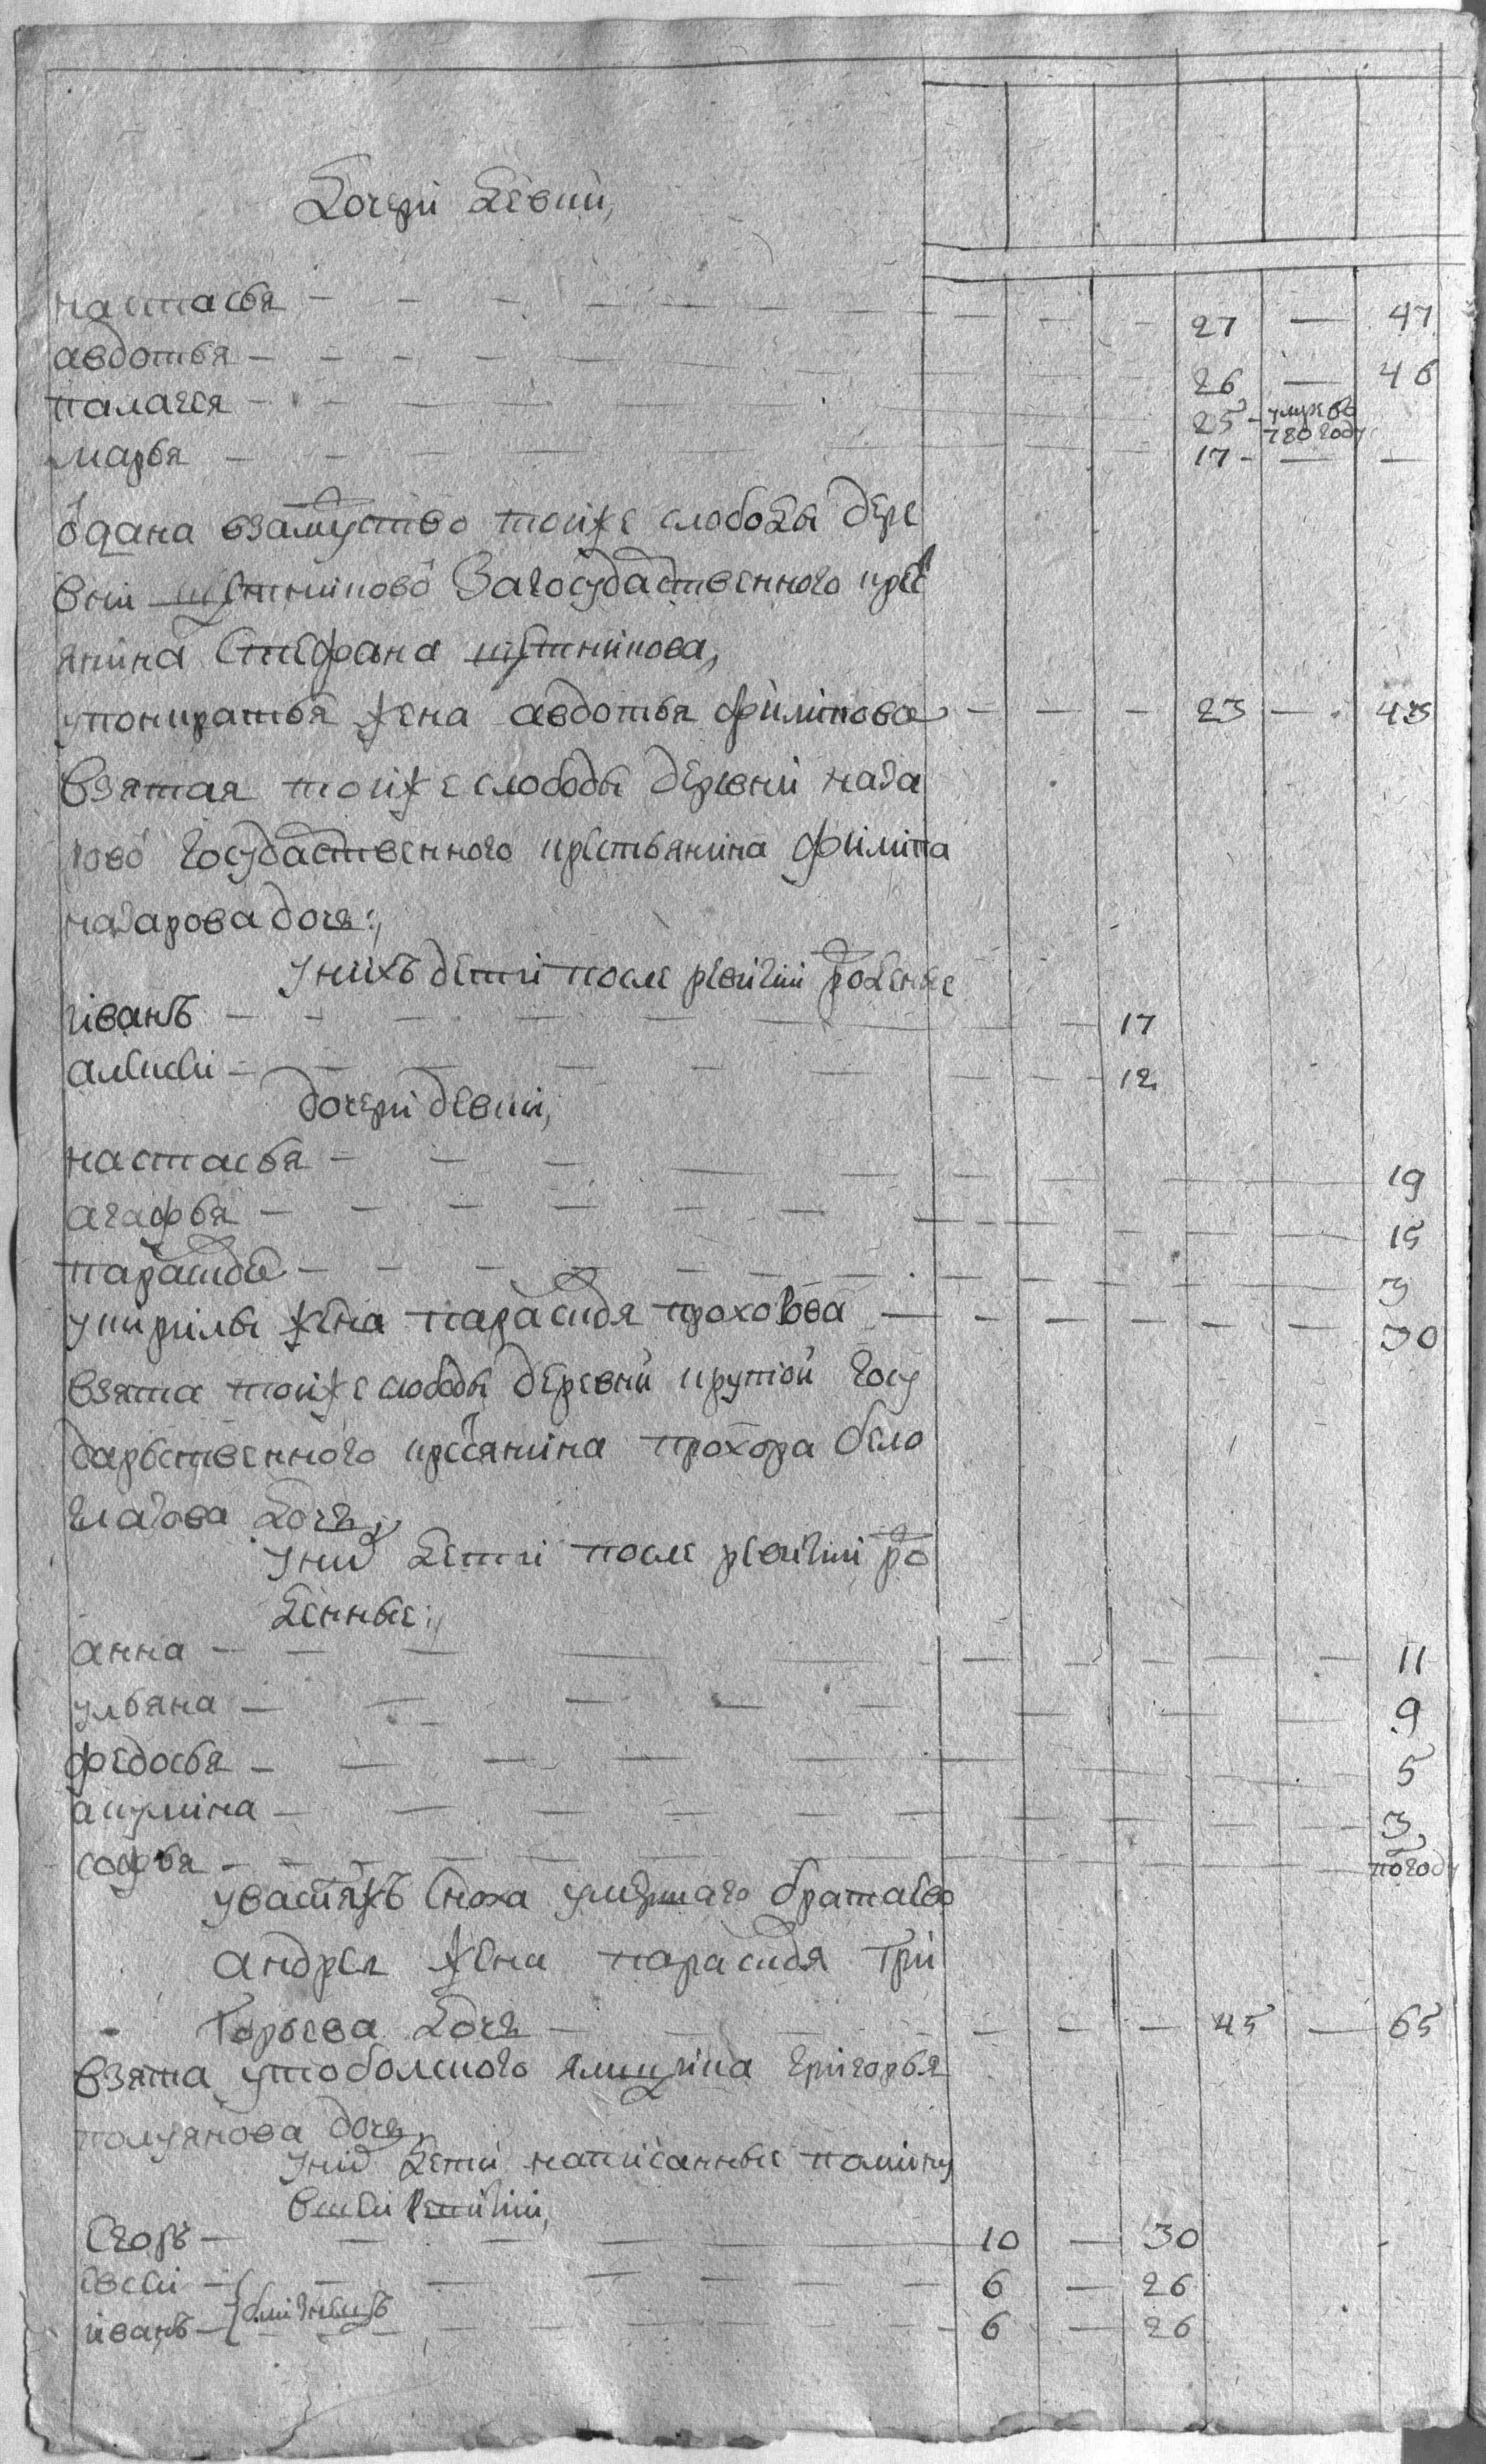 дочери девки,
настасья - - - 27 — 47
авдотья - - - 26 — 46
палагея - - - 25 - умре въ 780 году
марья - - - 17 - — —
одана взамуство тоиже слободы дере
вни шутниковой За государственного крес
янина Стефана шутникова,
у кондратья жена авдотья филипова - - - 23 — 43
взятая тоиже слободы деревни наза
ровой государственного крестьянина филипа
назарова дочь:,
у нихъ дети после ревизии рожденые
иванъ - - - 17
алексеи - - - 12
дочери девки,
настасья - - - 19
агафья - - - 15
парасковья - - - 3
у кирилы жена парасковья прохорова - - - 30
взята тоиже слободы деревни крутой госу
дарьственного кресянина прохора бело
глазова дочь,
у них дети после ревизии ро
жденные:,
анна - - - 11
ульяна - - - 9
федосья - - - 5
акулина - - - 3
софья - - - погоду
у васъ Сноха умершаго брата ево
андрея жена парасковья Гри
горьева дочь - - - 45 — 65
взята у тобольского ямщика григорья
полуянова дочь,
у них дети написанные
Егоръ - - - 10 — 30
евсеи - - - 6 — 26
иванъ - близнецы - - - 6 — 26